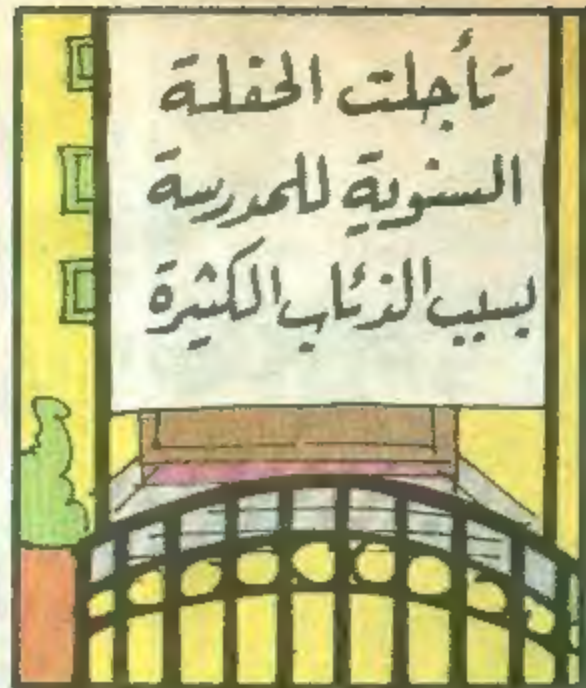 تأجلت الحفلة
السنوية للمدرسة
بسبب الذئاب الكثيرة